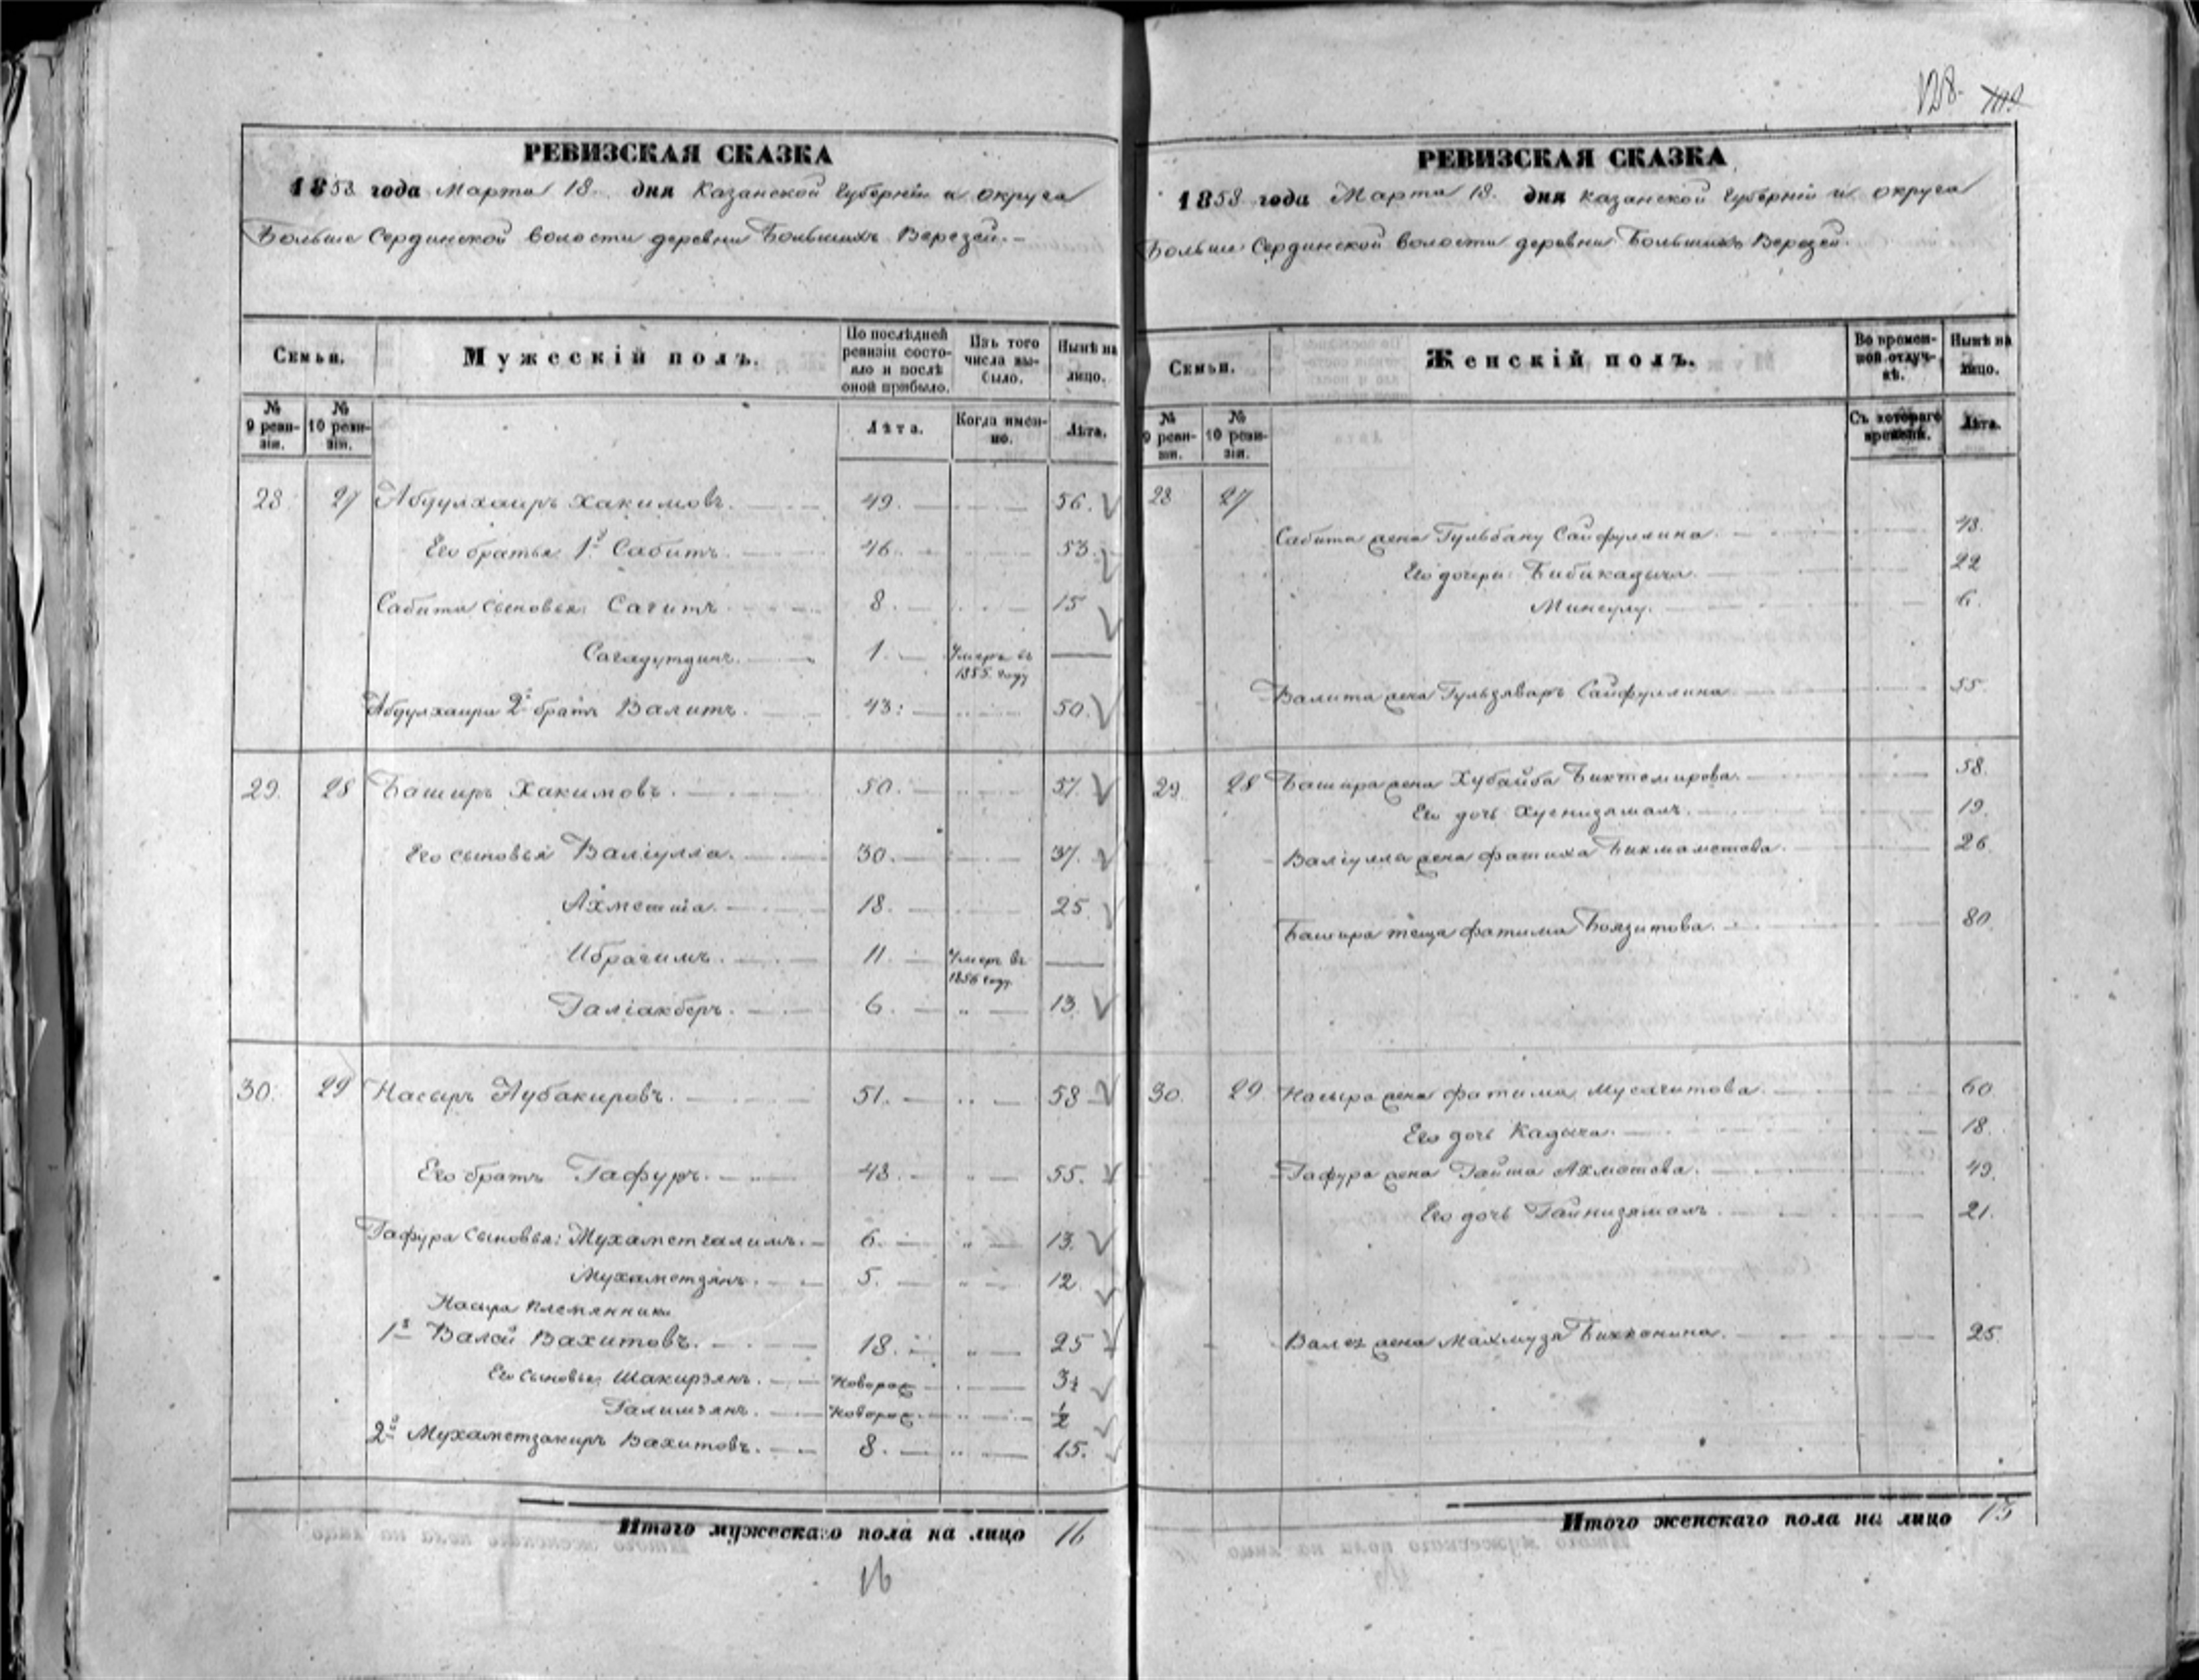 128. 109
РЕВИЗСКАЯ СКАЗКА
1858 года Марта 18. дня Казанской Губерніи и округа
Больше Сердинской волости деревни Большихъ Верезей.
Семьи.
Мужескій полъ.
По послѣдней ревизіи состояло и послѣ оной прибыло.
Изъ того числа выбыло.
Нынѣ на лицо.
№ 9 ревизіи.
№ 10 ревизіи.
Лѣта.
Когда именно.
Лѣта.
28 27 Абдулхаиръ Хакимовъ. 49. 56.
Его братья 1й Сабитъ. 46. 53.
Сабита сыновья: Сагитъ 8. 15
Сагадутдинъ. 1. Умеръ въ 1855. году
Абдулхаира 2й братъ Валитъ. 43. 50.
29. 28 Баширъ Хакимовъ. 50. 57.
Его сыновья Валіулла. 30. 37.
Ахметша. 18. 25.
Ибрагимъ. 11. Умеръ въ 1856 году
Галіакберъ. 6. 13.
30. 29 Насыръ Аубакировъ. 51. 58
Его братъ Гафуръ. 48. 55.
Гафура сыновья: Мухаметгалимъ. 6. 13.
Мухаметзянъ. 5. 12.
Насыра племянники
1й Валей Вахитовъ. 18. 25
Его сыновья: Шакирзянъ. Новорож 3½
Галимзянъ. Новорож. ½
2й Мухаметзакиръ Вахитовъ. 8. 15.
Итого мужескаго пола на лицо 16
16
РЕВИЗСКАЯ СКАЗКА
1858 года Марта 18. дня Казанской Губерніи и округа
Больше Сердинской волости деревни Большихъ Верезей.
Семьи.
Женскій полъ.
Во временной отлучкѣ.
Нынѣ на лицо.
№ 9 ревизіи.
№ 10 ревизіи.
Съ котораго времени.
Лѣта.
28 27
Сабита жена Гульбану Сайфуллина. 48.
Его дочери: Бибикадыча. 22
Минсулу. 6.
Валита жена Гульзяваръ Сайфуллина 55.
29. 28 Башира жена Хубайба Биктемирова. 58.
Его дочь Хуснизямалъ. 19.
Валіулла жена Фатиха Бикмаметова. 26.
Башира теща Фатима Боязитова. 80.
30. 29. Насыра жена Фатима Мусагитова. 60
Его дочь Кадыча. 18.
Гафура жена Гайша Ахметова. 49.
Его дочь Гайнизямалъ. 21.
Валея жена Махмуза Бикконина. 25.
Итого женскаго пола на лицо 13